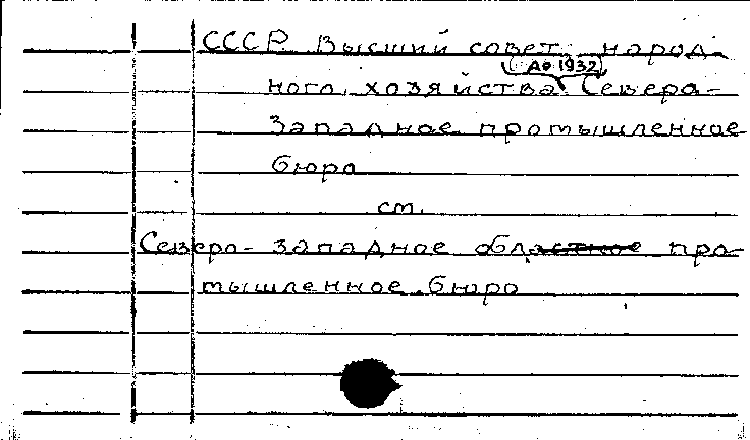 СССР. Высший совет народ-
(до 1932)
ного хозяйства. Северо-
Западное промышленное
бюро
ст.
Северо-Западное областное про-
мышленное бюро